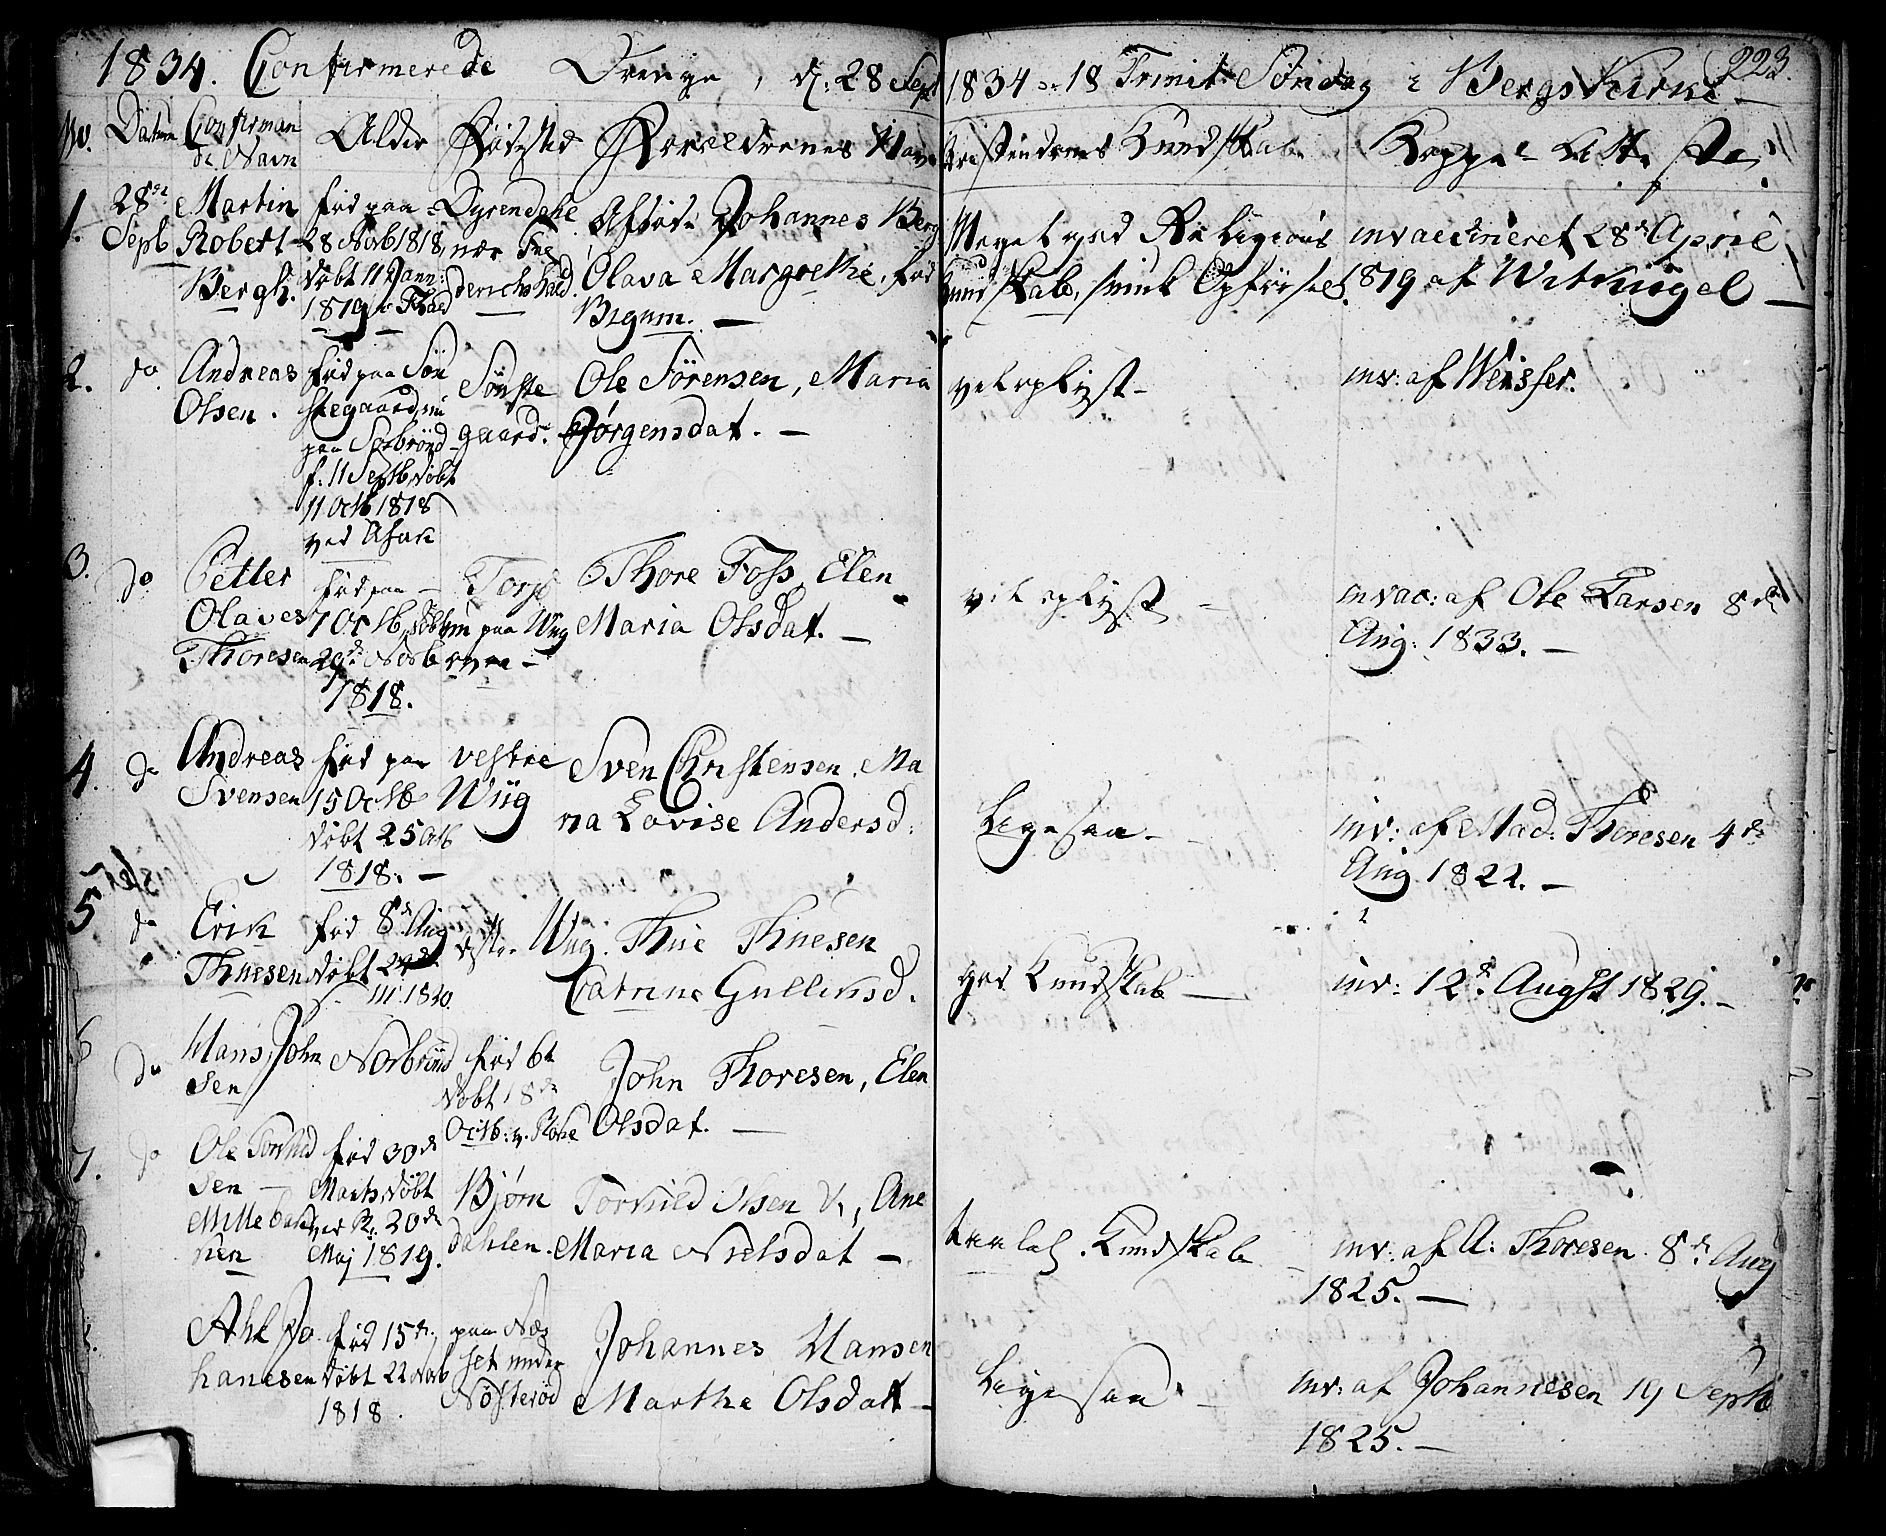 1834. Confirmerede Drenge, d. 28 Sept 1834 18 Trinit: Søndag i Bergs Kirke 223.
No. Datum Confirmandens Navn Alder Fødested Forældrenes Navn Kristendoms Kundskab Koppe Att
1. 28de Sept Martin Robert Bergh.
født paa
28 Novb 1818,
døbt 11 Jann:
1819
Dyrendahl
nær Fre
derichshald.
Afdøde Johannes Berg
Olava Margrethe, fød
Bigum. —
Meget god Religions
Kundskab, smuk Opførsel.
invaccineret 28de April
1819 af Witkügel —
2. do
Andreas
Olsen.
født paa Søn
stegaard, nu
paa Sørbrönd
f. 11 Septb, døbt
11 Octb 1818
ved
Sønste
gaard.
Ole Sörensen, Maria
Jørgensdat. —
vel oplyst —
inv: af Weisser.
3. do
Petter
Olaves
Thoresen
født paa —
7 Octb, døbt
29de Novb
1818.
Torp
nu paa Wiig
Thore Foss, Elen
Maria Olsdat. —
vel oplyst —
invac: af Ole Larsen 8de
Aug: 1833. —
4. do
Andreas
Svensen
født paa
15 Octb
døbt 25 Octb
1818. —
vestre
Wiig
Sven Christensen, Ma
ria Lovise Andersd:
Ligesaa —
inv: af Mad: Thoresen 4de
Aug 1822. —
5 do
Erik
Thuesen
født 8de Aug
døbt
1820
Vestre Wiig.
Thue Thuesen
Catrine Gulliksd.
god Kundskab —
inv: 12te Augst 1829. —
6 do
Hans John
sen
Norbrönd
født 6t
døbt 18de
Octb:
John Thoresen, Elen
Olsdat. —
7. do
Ole Torkild
sen —
født 30de
Marts, døbt
20de
Maj 1819.
Bjørn
dahlen.
Torkild Olsen, Ane
Maria Nielsdat —
taalel. Kundskab
inv: af A: Thoresen. 8de Aug
1825. —
Jo
hanesen
født 15de
døbt 22 Novb
1818.
paa Næ
set under
Nösteröd
Johannes Hansen
Marthe Olsdatt —
Ligesaa —
inv: af Johannesen 19 Septb
1825. —